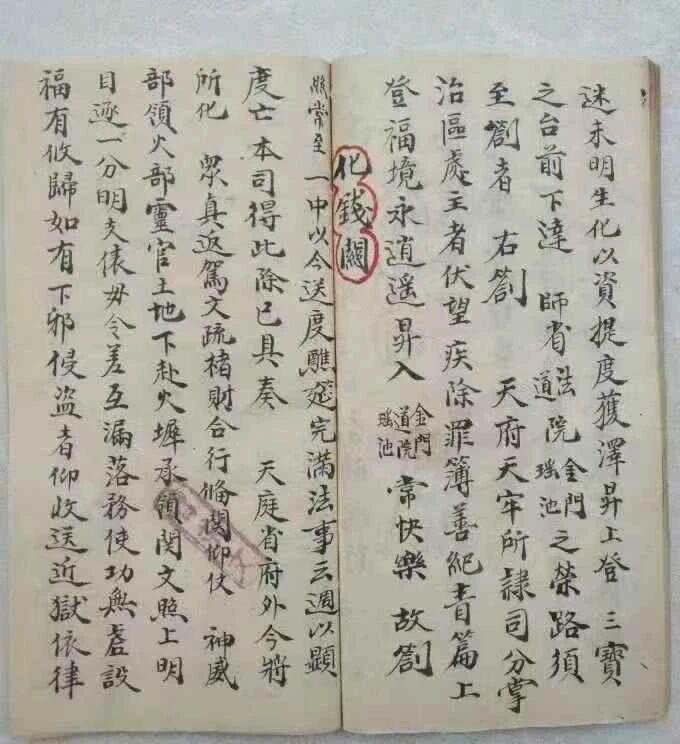 迷未明生化以資提度獲澤昇上登 三寶
之台前下達 師省 法院 道 金門 瑤池 之榮路須
至劄者 右劄 天府天牢所隷司分掌
治區處主者伏望疾除罪簿善紀青篇上
登福境永逍遥昇入 金門 道院 瑤池 常快樂 故劄
化錢關
照常至一中以今送度醮筵完滿法事云週以顯
度亡 本司得此除已具奏 天庭省府外今將
所化 眾真返駕文疏楮財合行俻関仰仗 神威
部領火部靈官土地下赴火墀承領関文照上明
目逐一分明交俵毋令差互漏落務使功無虗設
福有攸歸如有下邪侵盜者仰收送近獄依律